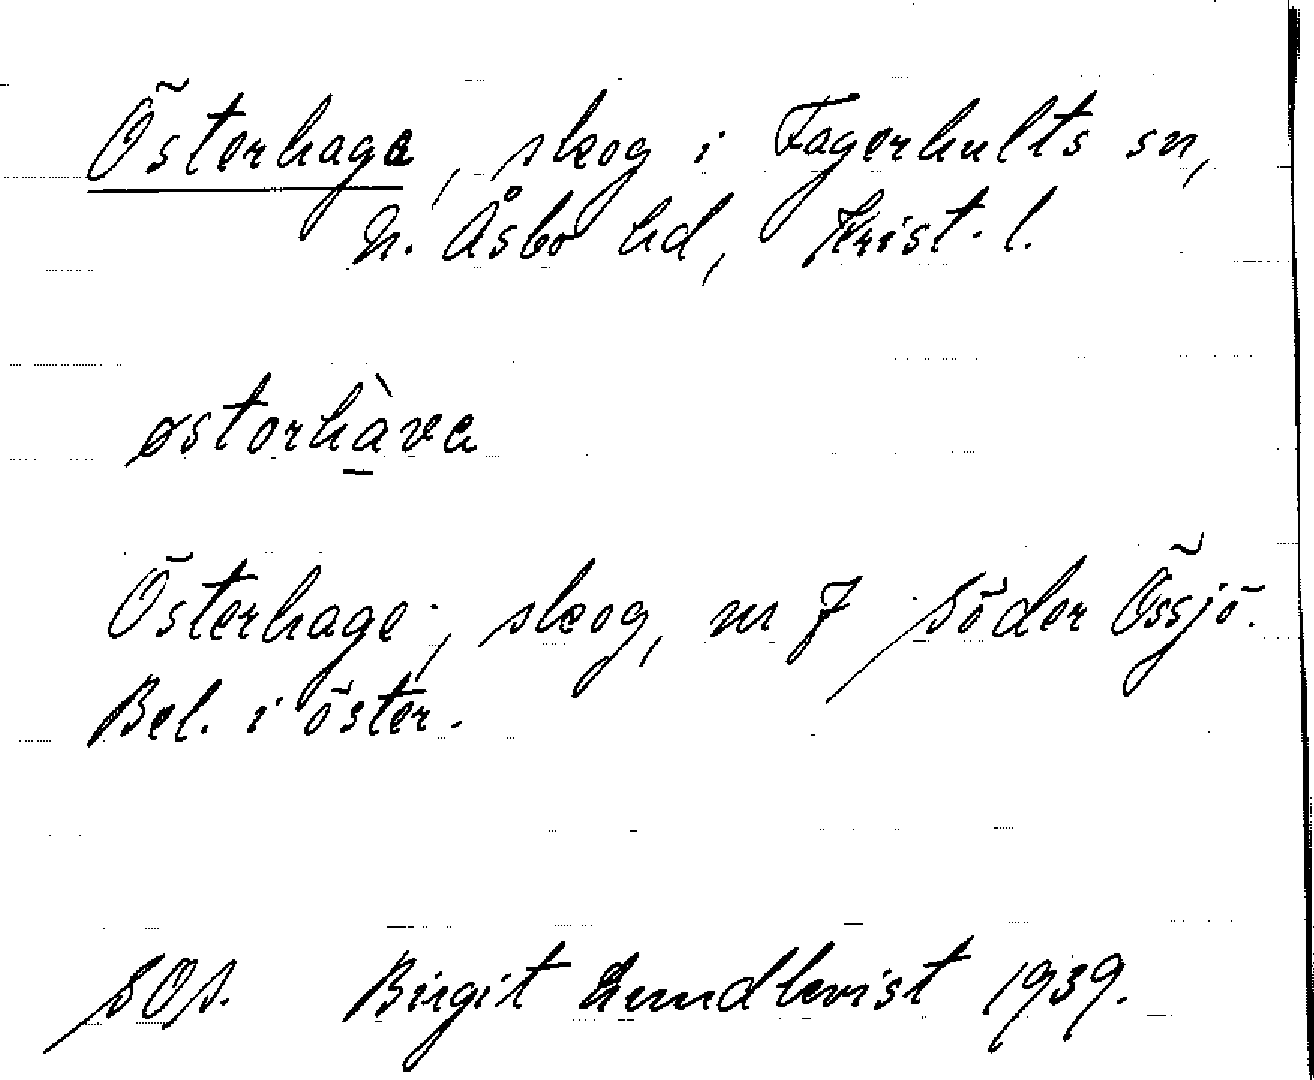 Österhage, skog i Fagerhults sn,
N. Åsbo hd, Krist. l.
østərhàva
Österhage, skog, nr 7 Söder Össjö.
Bel. i öster.
SOs. Birgit Lundkvist 1939.